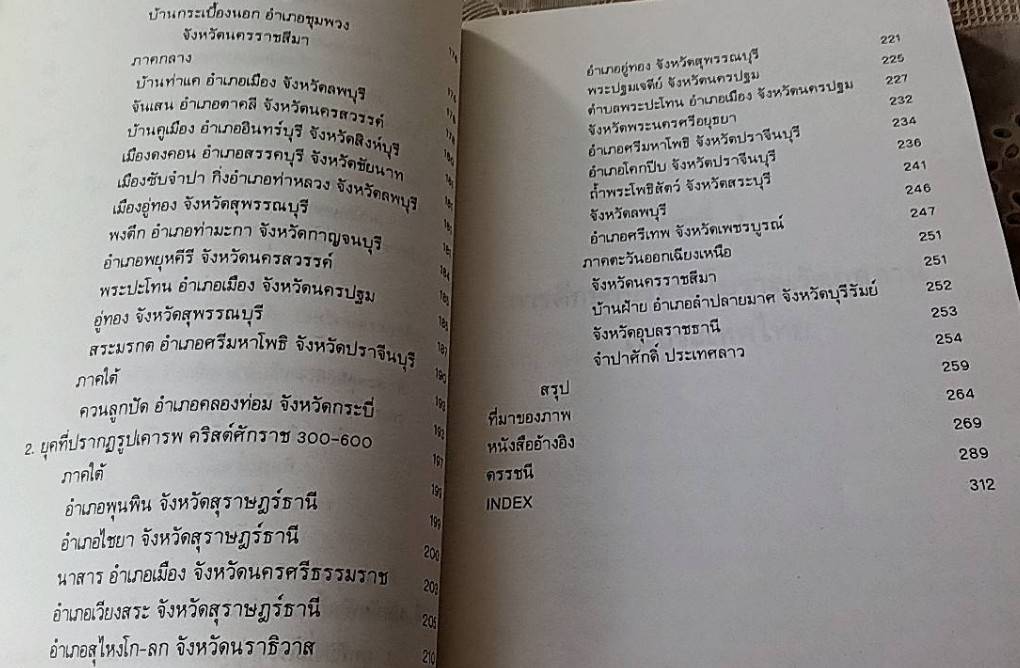 บ้านกระเบื้องนอก อำเภอชุมพวง
จังหวัดนครราชสีมา
ภาคกลาง
บ้านท่าแค อำเภอเมือง จังหวัดลพบุรี
จันเสน อำเภอตาคลี จังหวัดนครสวรรค์
บ้านคูเมือง อำเภออินทร์บุรี จังหวัดสิงห์บุรี
เมืองดงคอน อำเภอสรรคบุรี จังหวัดชัยนาท
เมืองซับจำปา กิ่งอำเภอท่าหลวง จังหวัดลพบุรี
เมืองอู่ทอง จังหวัดสุพรรณบุรี
พงตึก อำเภอท่ามะกา จังหวัดกาญจนบุรี
อำเภอพยุหคีรี จังหวัดนครสวรรค์
พระปะโทน อำเภอเมือง จังหวัดนครปฐม
อู่ทอง จังหวัดสุพรรณบุรี 187
สระมรกต อำเภอศรีมหาโพธิ จังหวัดปราจีนบุรี 190
ภาคใต้ 193
ควนลูกปัด อำเภอคลองท่อม จังหวัดกระบี่ 193
2. ยุคที่ปรากฏรูปเคารพ คริสต์ศักราช 300-600 197
ภาคใต้
อำเภอพุนพิน จังหวัดสุราษฎร์ธานี 199
อำเภอไชยา จังหวัดสุราษฎร์ธานี 200
นาสาร อำเภอเมือง จังหวัดนครศรีธรรมราช 203
อำเภอเวียงสระ จังหวัดสุราษฎร์ธานี 205
อำเภอสุไหงโก-ลก จังหวัดนราธิวาส 210
อำเภออู่ทอง จังหวัดสุพรรณบุรี 221
พระปฐมเจดีย์ จังหวัดนครปฐม 225
ตำบลพระปะโทน อำเภอเมือง จังหวัดนครปฐม 227
จังหวัดพระนครศรีอยุธยา 232
อำเภอศรีมหาโพธิ จังหวัดปราจีนบุรี 234
อำเภอโคกปีบ จังหวัดปราจีนบุรี 236
ถ้ำพระโพธิสัตว์ จังหวัดสระบุรี 241
จังหวัดลพบุรี 246
อำเภอศรีเทพ จังหวัดเพชรบูรณ์ 247
ภาคตะวันออกเฉียงเหนือ 251
จังหวัดนครราชสีมา 251
บ้านฝ้าย อำเภอลำปลายมาศ จังหวัดบุรีรัมย์ 252
จังหวัดอุบลราชธานี 253
จำปาศักดิ์ ประเทศลาว 254
สรุป 259
ที่มาของภาพ 264
หนังสืออ้างอิง 269
ดรรชนี 289
INDEX 312